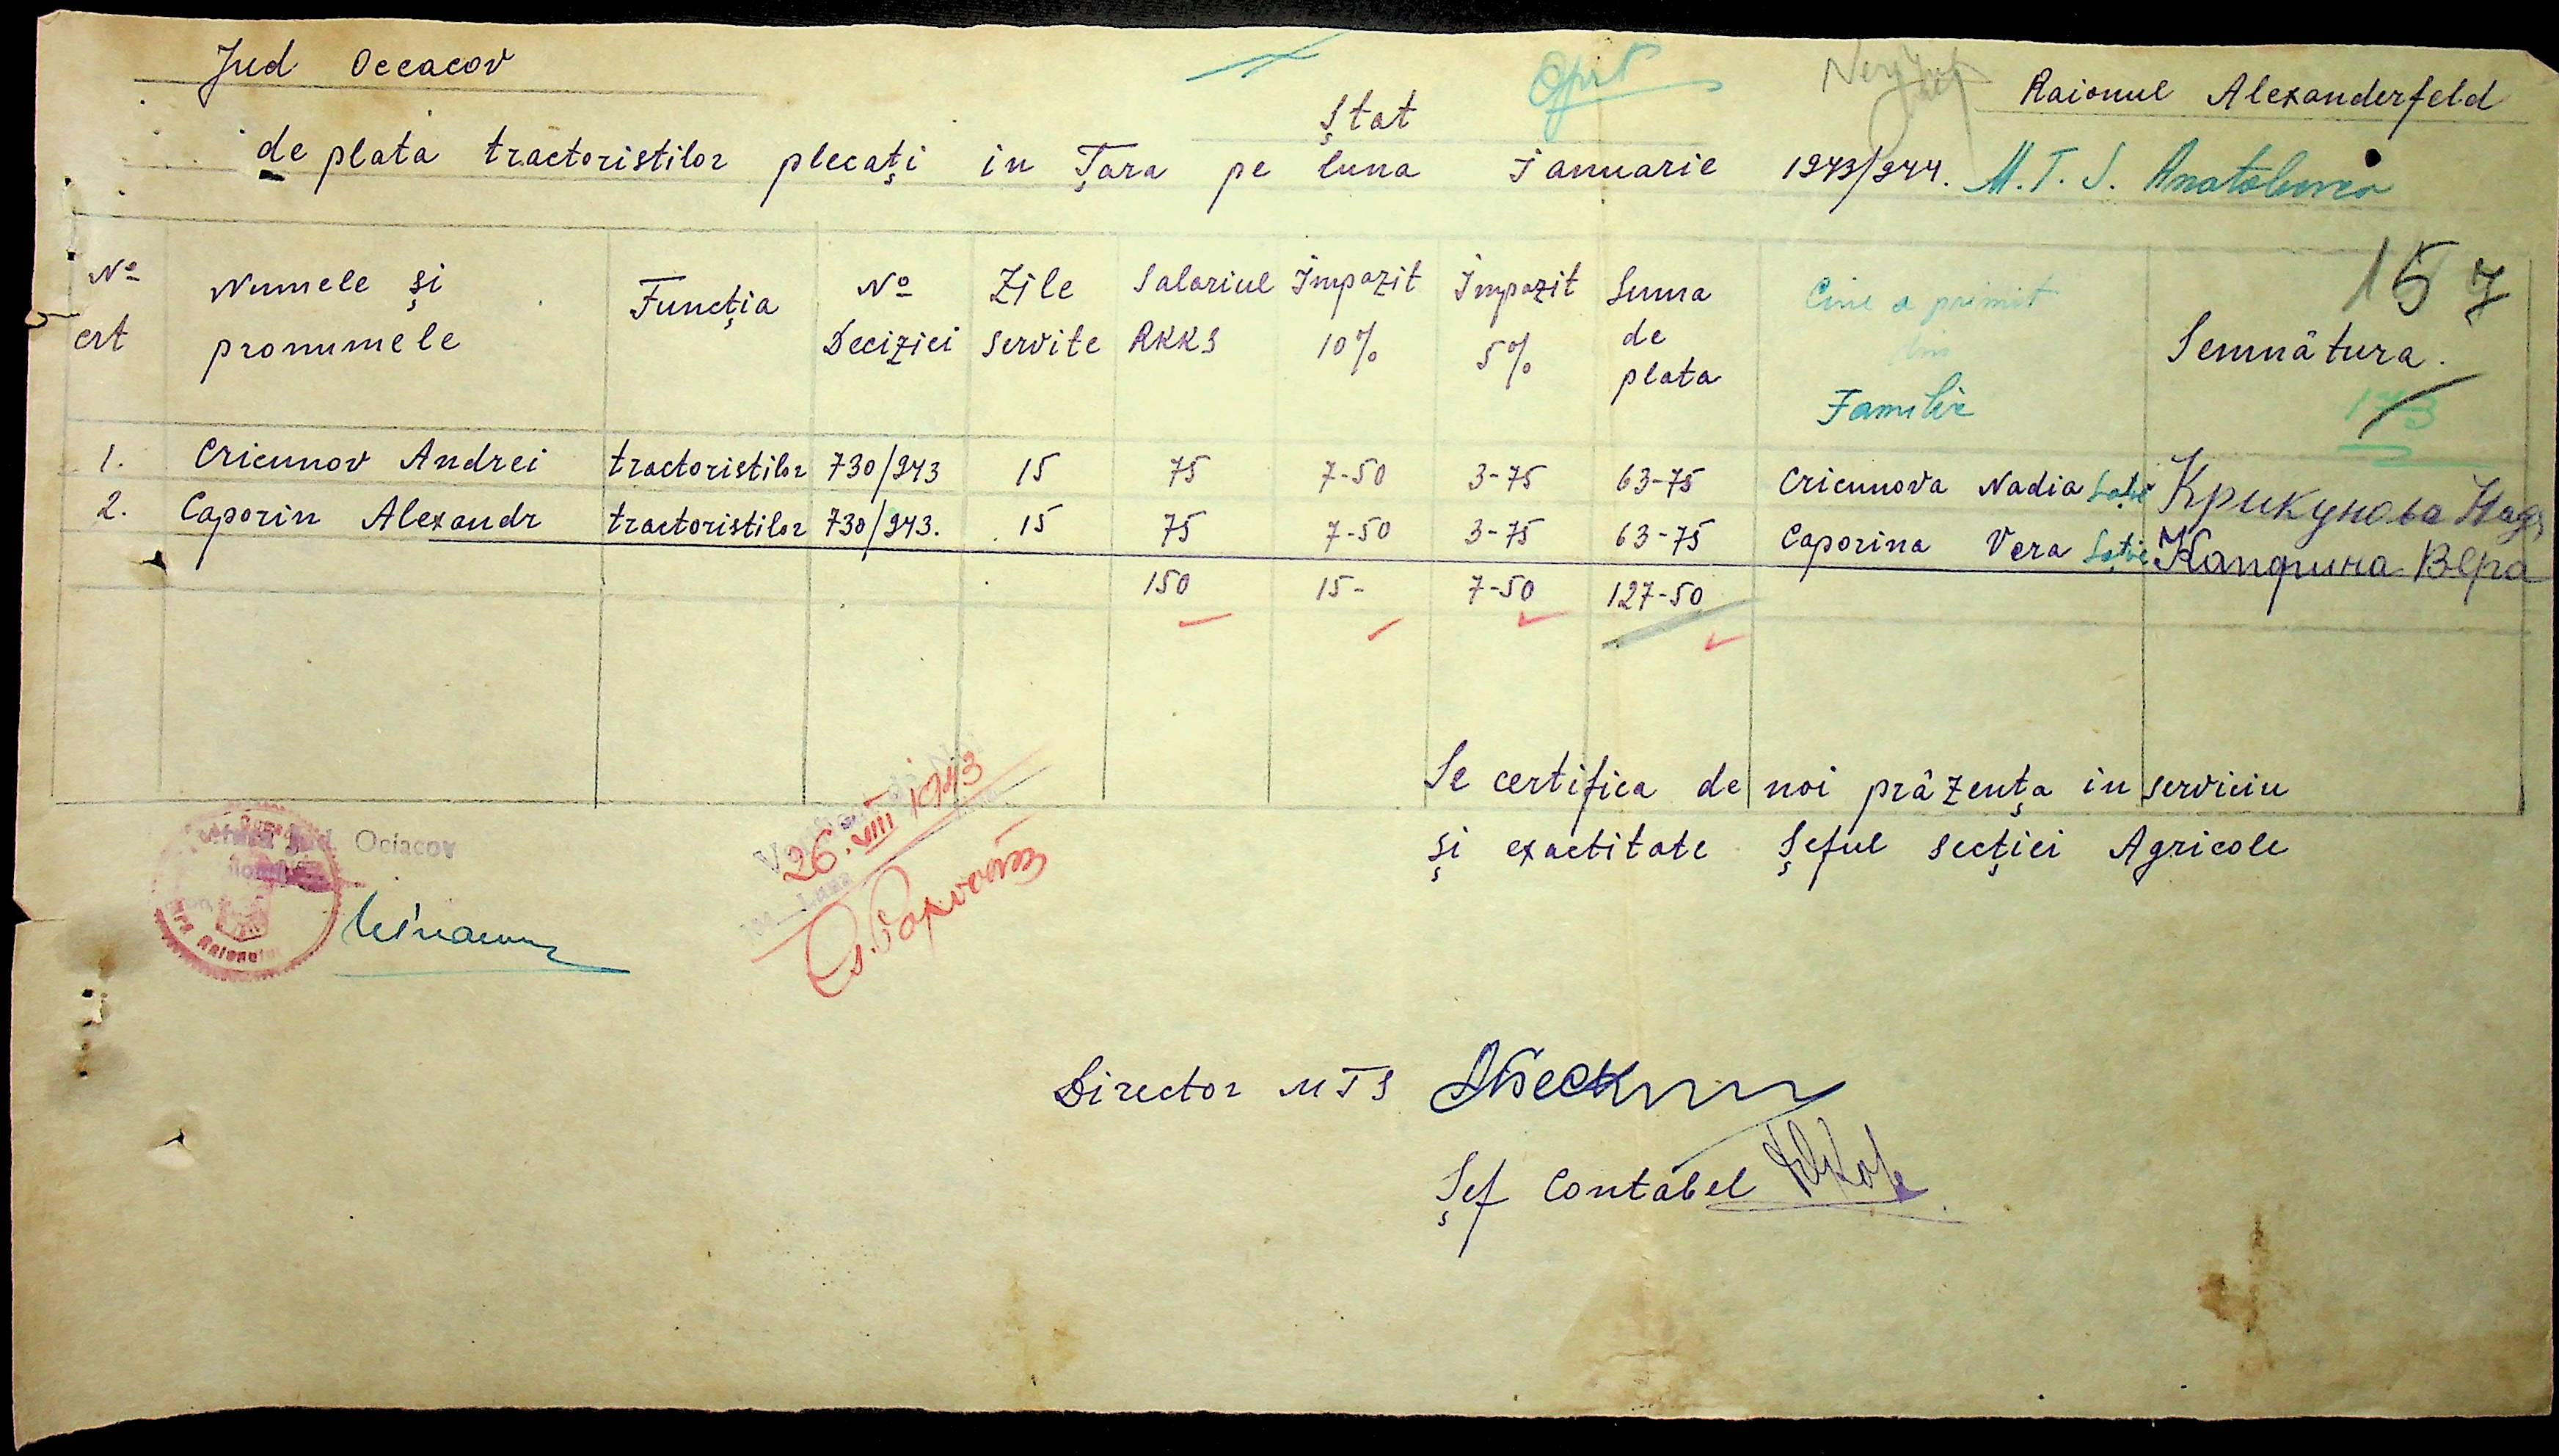 Jud Occacov
Raionul Alexanderfeld
Ștat
de plata tractoristilor plecați in Țara pe luna Januarie 1943/944. M.T.S. Anatolievca
157
Nº crt Numele și pronumele Funcția Nº Deciziei Zile servite Salariul RKKS Impozit 10% Impozit 5% Suma de plata Cine a primit din Familie Semnâtura.
1. Cricunov Andrei tractoristilor 730/943 15 75 7-50 3-75 63-75 Cricunova Nadia Soție Крикунова Надя
2. Caporin Alexandr tractoristilor 730/943. 15 75 7-50 3-75 63-75 Caporina Vera Soție Капорина Вера
150 15- 7-50 127-50
Se certifica de noi prâzența in serviciu
și exactitate Șeful secției Agricole
Ociacov
26.VIII 1943
Director MTS
Șef Contabel